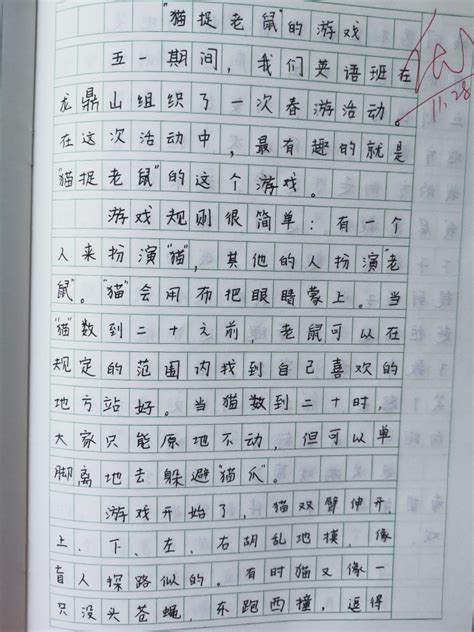 "猫捉老鼠"的游戏
五一期间，我们英语班在
龙鼎山组织了一次春游活动。
在这次活动中，最有趣的就是
"猫捉老鼠"的这个游戏。
游戏规则很简单：有一个
人来扮演"猫"，其他的人扮演"老
鼠"。"猫"会用布把眼睛蒙上。当
"猫"数到二十之前，老鼠可以在
规定的范围内找到自己喜欢的
地方站好。当猫数到二十时，
大家只能原地不动，但可以单
脚离地去躲避"猫爪"。
游戏开始了，猫双臂伸开，
上、下、左、右胡乱地摸，像
盲人探路似的。有时猫又像一
只没头苍蝇，东跑西撞，逗得
11.28